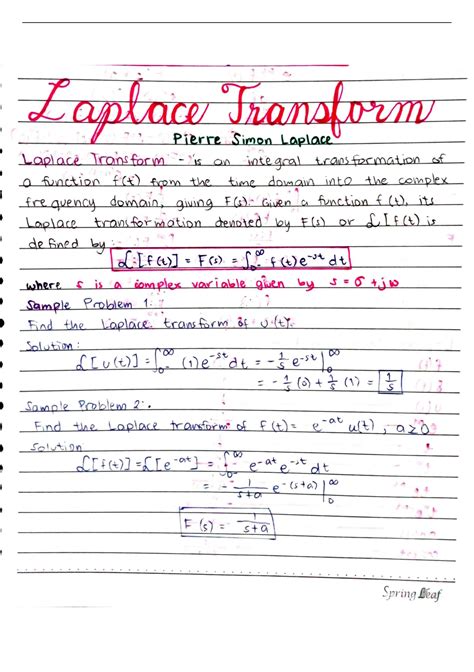 Laplace Transform
Pierre Simon Laplace
Laplace Transform - is an integral transformation of
a function f(t) from the time domain into the complex
frequency domain, giving F(s). Given a function f(t), its
Laplace transformation denoted by F(s) or ℒ[f(t)] is
defined by:
ℒ[f(t)] = F(s) = ∫₀₋^∞ f(t)e^-st dt
where s is a complex variable given by s = σ + jω
Sample Problem 1:
Find the Laplace transform of u(t).
Solution:
ℒ[u(t)] = ∫₀₋^∞ (1)e^-st dt = -1/s e^-st |₀^∞
= -1/s (0) + 1/s (1) = 1/s
Sample Problem 2:
Find the Laplace transform of f(t) = e^-at u(t), a≥0
Solution
ℒ[f(t)] = ℒ[e^-at] = ∫₀₋^∞ e^-at e^-st dt
= - 1/s+a e^-(s+a) |₀^∞
F(s) = 1/s+a
Spring Leaf